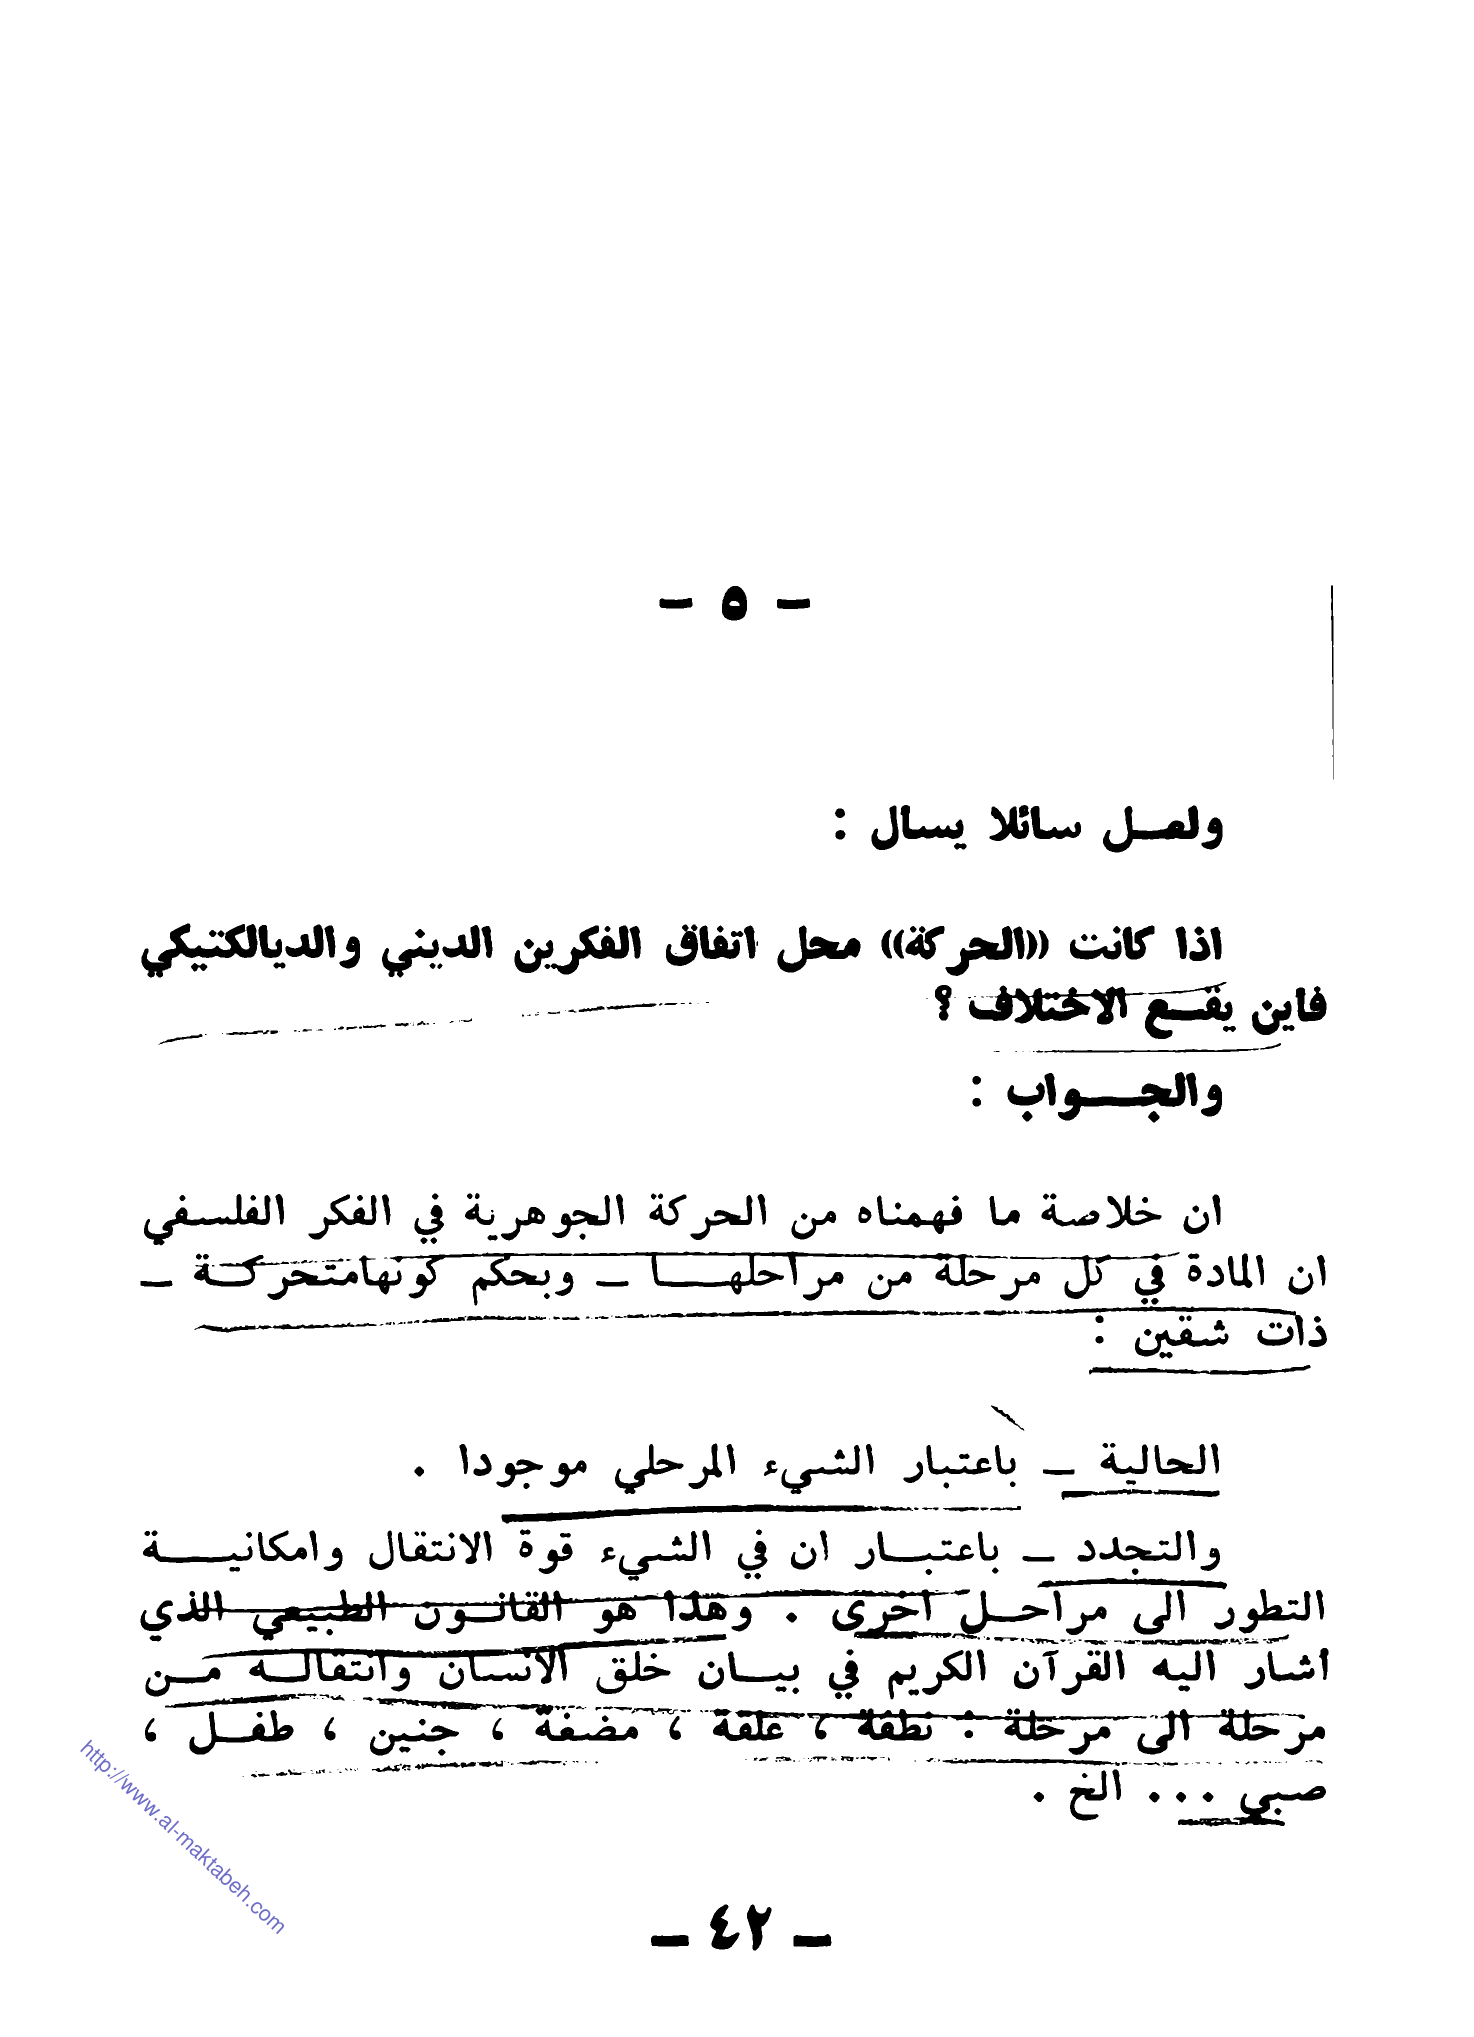 - ٥ -
ولعل سائلا يسال :
اذا كانت ((الحركة)) محل اتفاق الفكرين الديني والديالكتيكي
فاين يقع الاختلاف ؟
والجواب :
ان خلاصة ما فهمناه من الحركة الجوهرية في الفكر الفلسفي
ان المادة في كل مرحلة من مراحلها ــ وبحكم كونهامتحركة ــ
ذات شقين :
الحالية ــ باعتبار الشيء المرحلي موجودا .
والتجدد ــ باعتبار ان في الشيء قوة الانتقال وامكانية
التطور الى مراحل اخرى . وهذا هو القانون الطبيعي الذي
أشار اليه القرآن الكريم في بيان خلق الانسان وانتقاله من
مرحلة الى مرحلة : نطفة ، علقة ، مضفة ، جنين ، طفل ،
صبي ... الخ .
ــ ٤٢ ــ
http://www.al-maktabeh.com